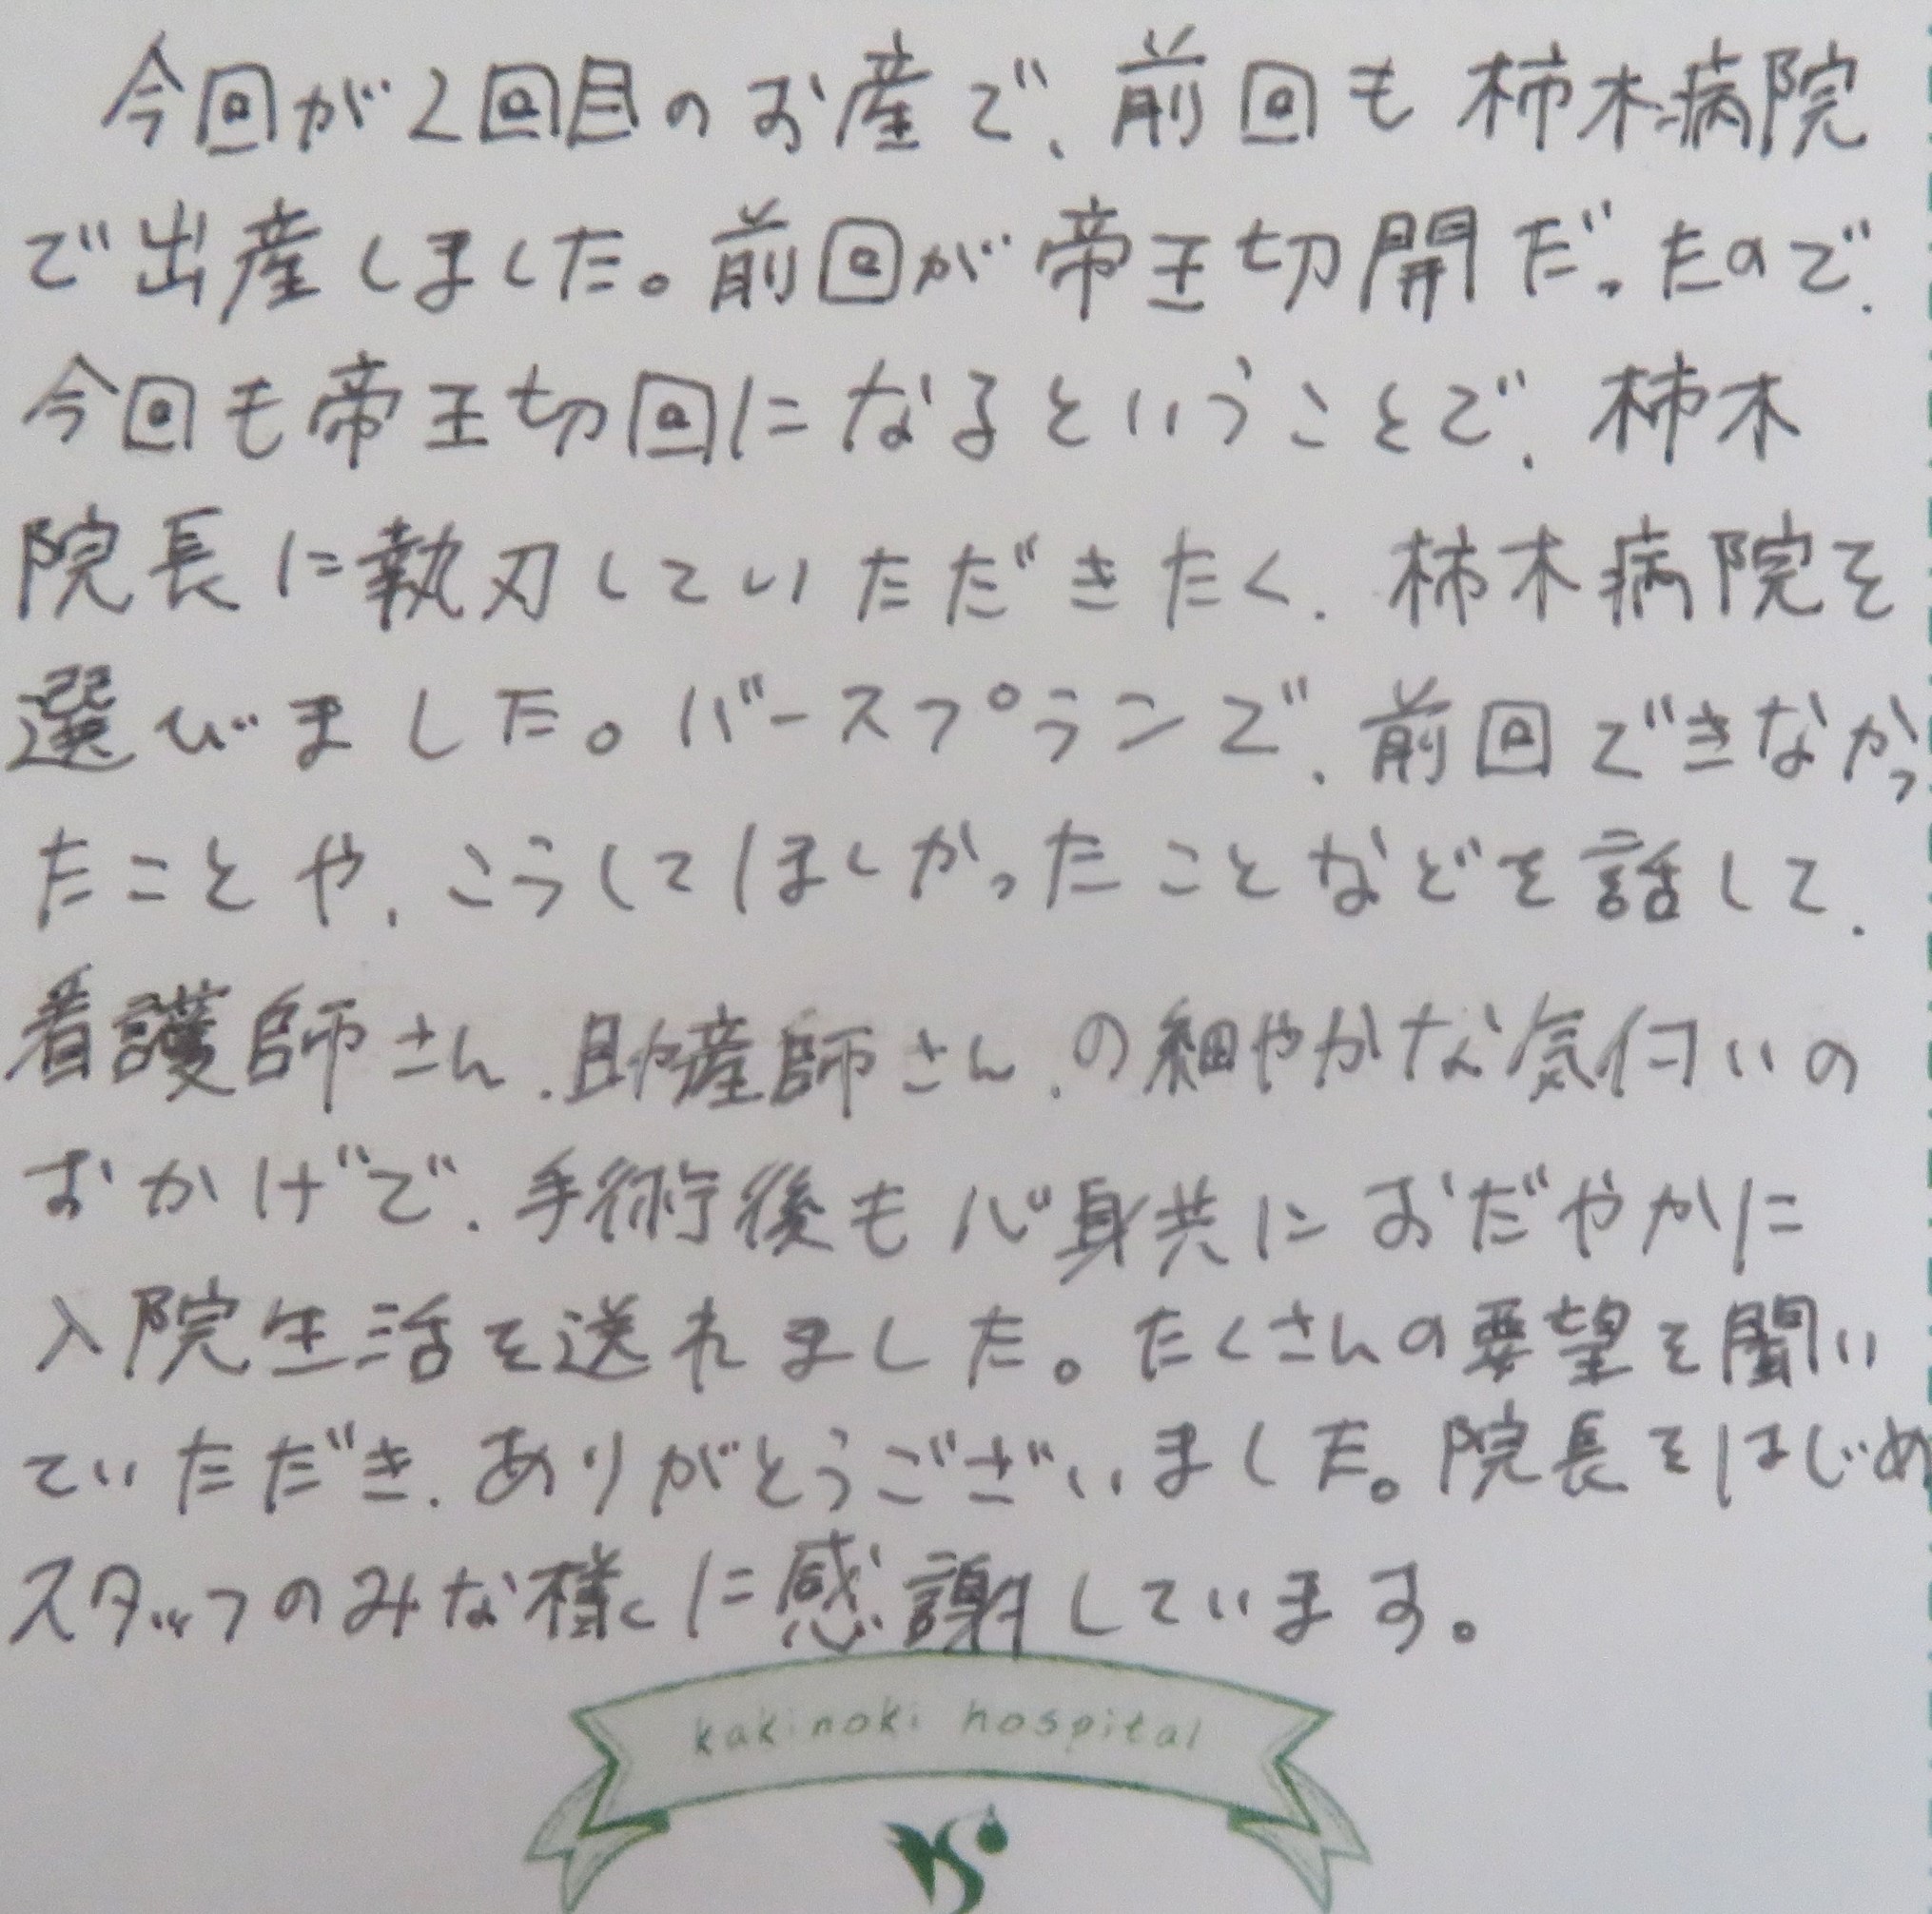 今回が2回目のお産で、前回も柿木病院
で出産しました。前回が帝王切開だったので、
今回も帝王切回になるということで、柿木
院長に執刃していただきたく、柿木病院を
選びました。バースプランで、前回できなかっ
たことや、こうしてほしかったことなどを話して、
看護師さん、助産師さん、の細やかな気付いの
おかげで、手術後も心身共におだやかに
入院生活を送れました。たくさんの要望を聞い
ていただき、ありがとうございました。院長をはじめ
スタッフのみな様に感謝しています。
kakinoki hospital